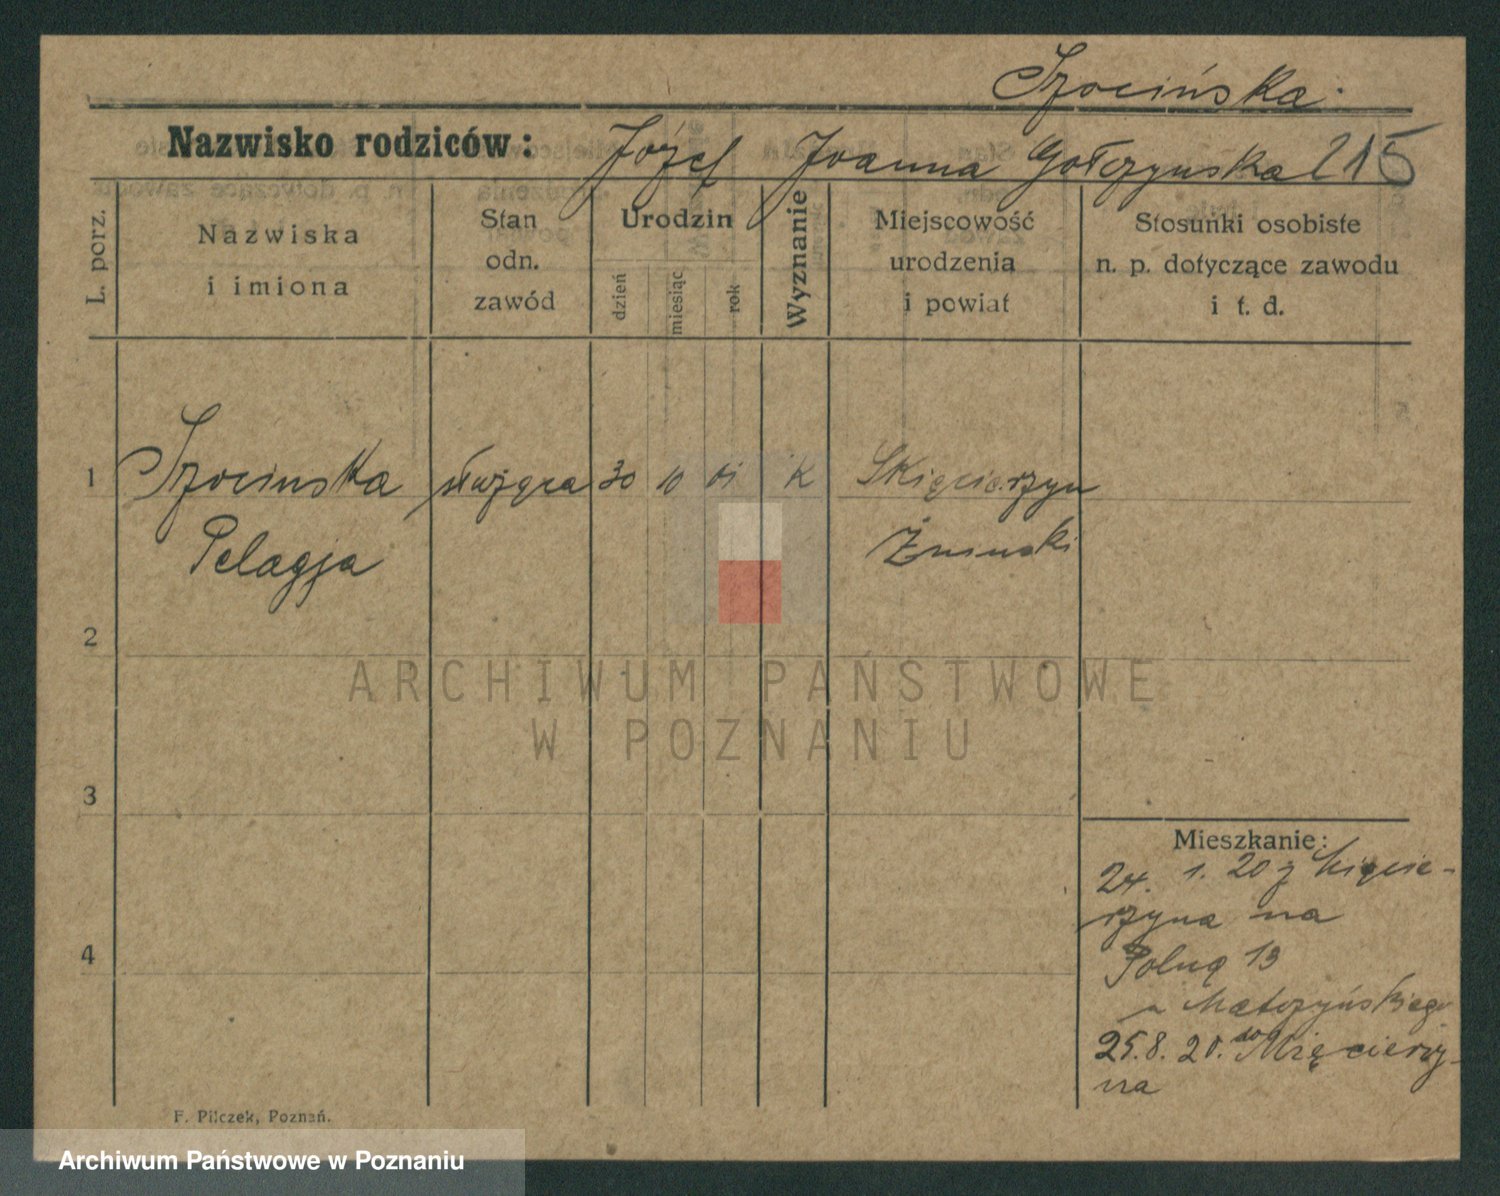 Szocińska
Nazwisko rodziców: Józef Joanna Gołczynska 215
L. porz.
Nazwiska
i imiona
Stan
odn.
zawód
Urodzin
dzień
miesiąc
rok
Wyznanie
Miejscowość
urodzenia
i powiat
Stosunki osobiste
n. p. dotyczące zawodu
i t. d.
1 Szocinska służąca 30 10 01 K
Pelagja
Żninski
2
ARCHIWUM PAŃSTWOWE
W POZNANIU
3
4
Mieszkanie:
24. 1. 20 z
rzyna na
Polną 13
u
25.8.20. do
na
F. Pilczek, Poznań.
Archiwum Państwowe w Poznaniu